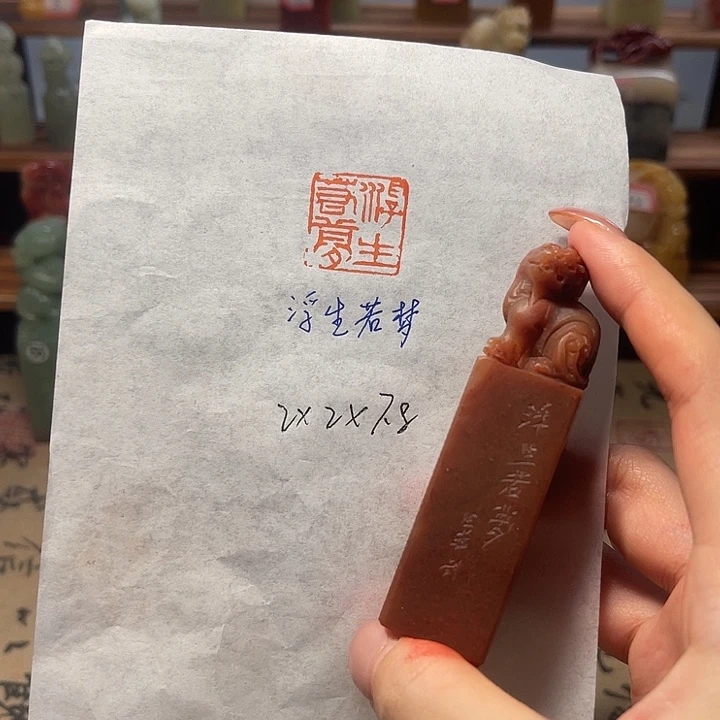 浮生若夢
浮生若梦
2x2x7.8
浮生若梦